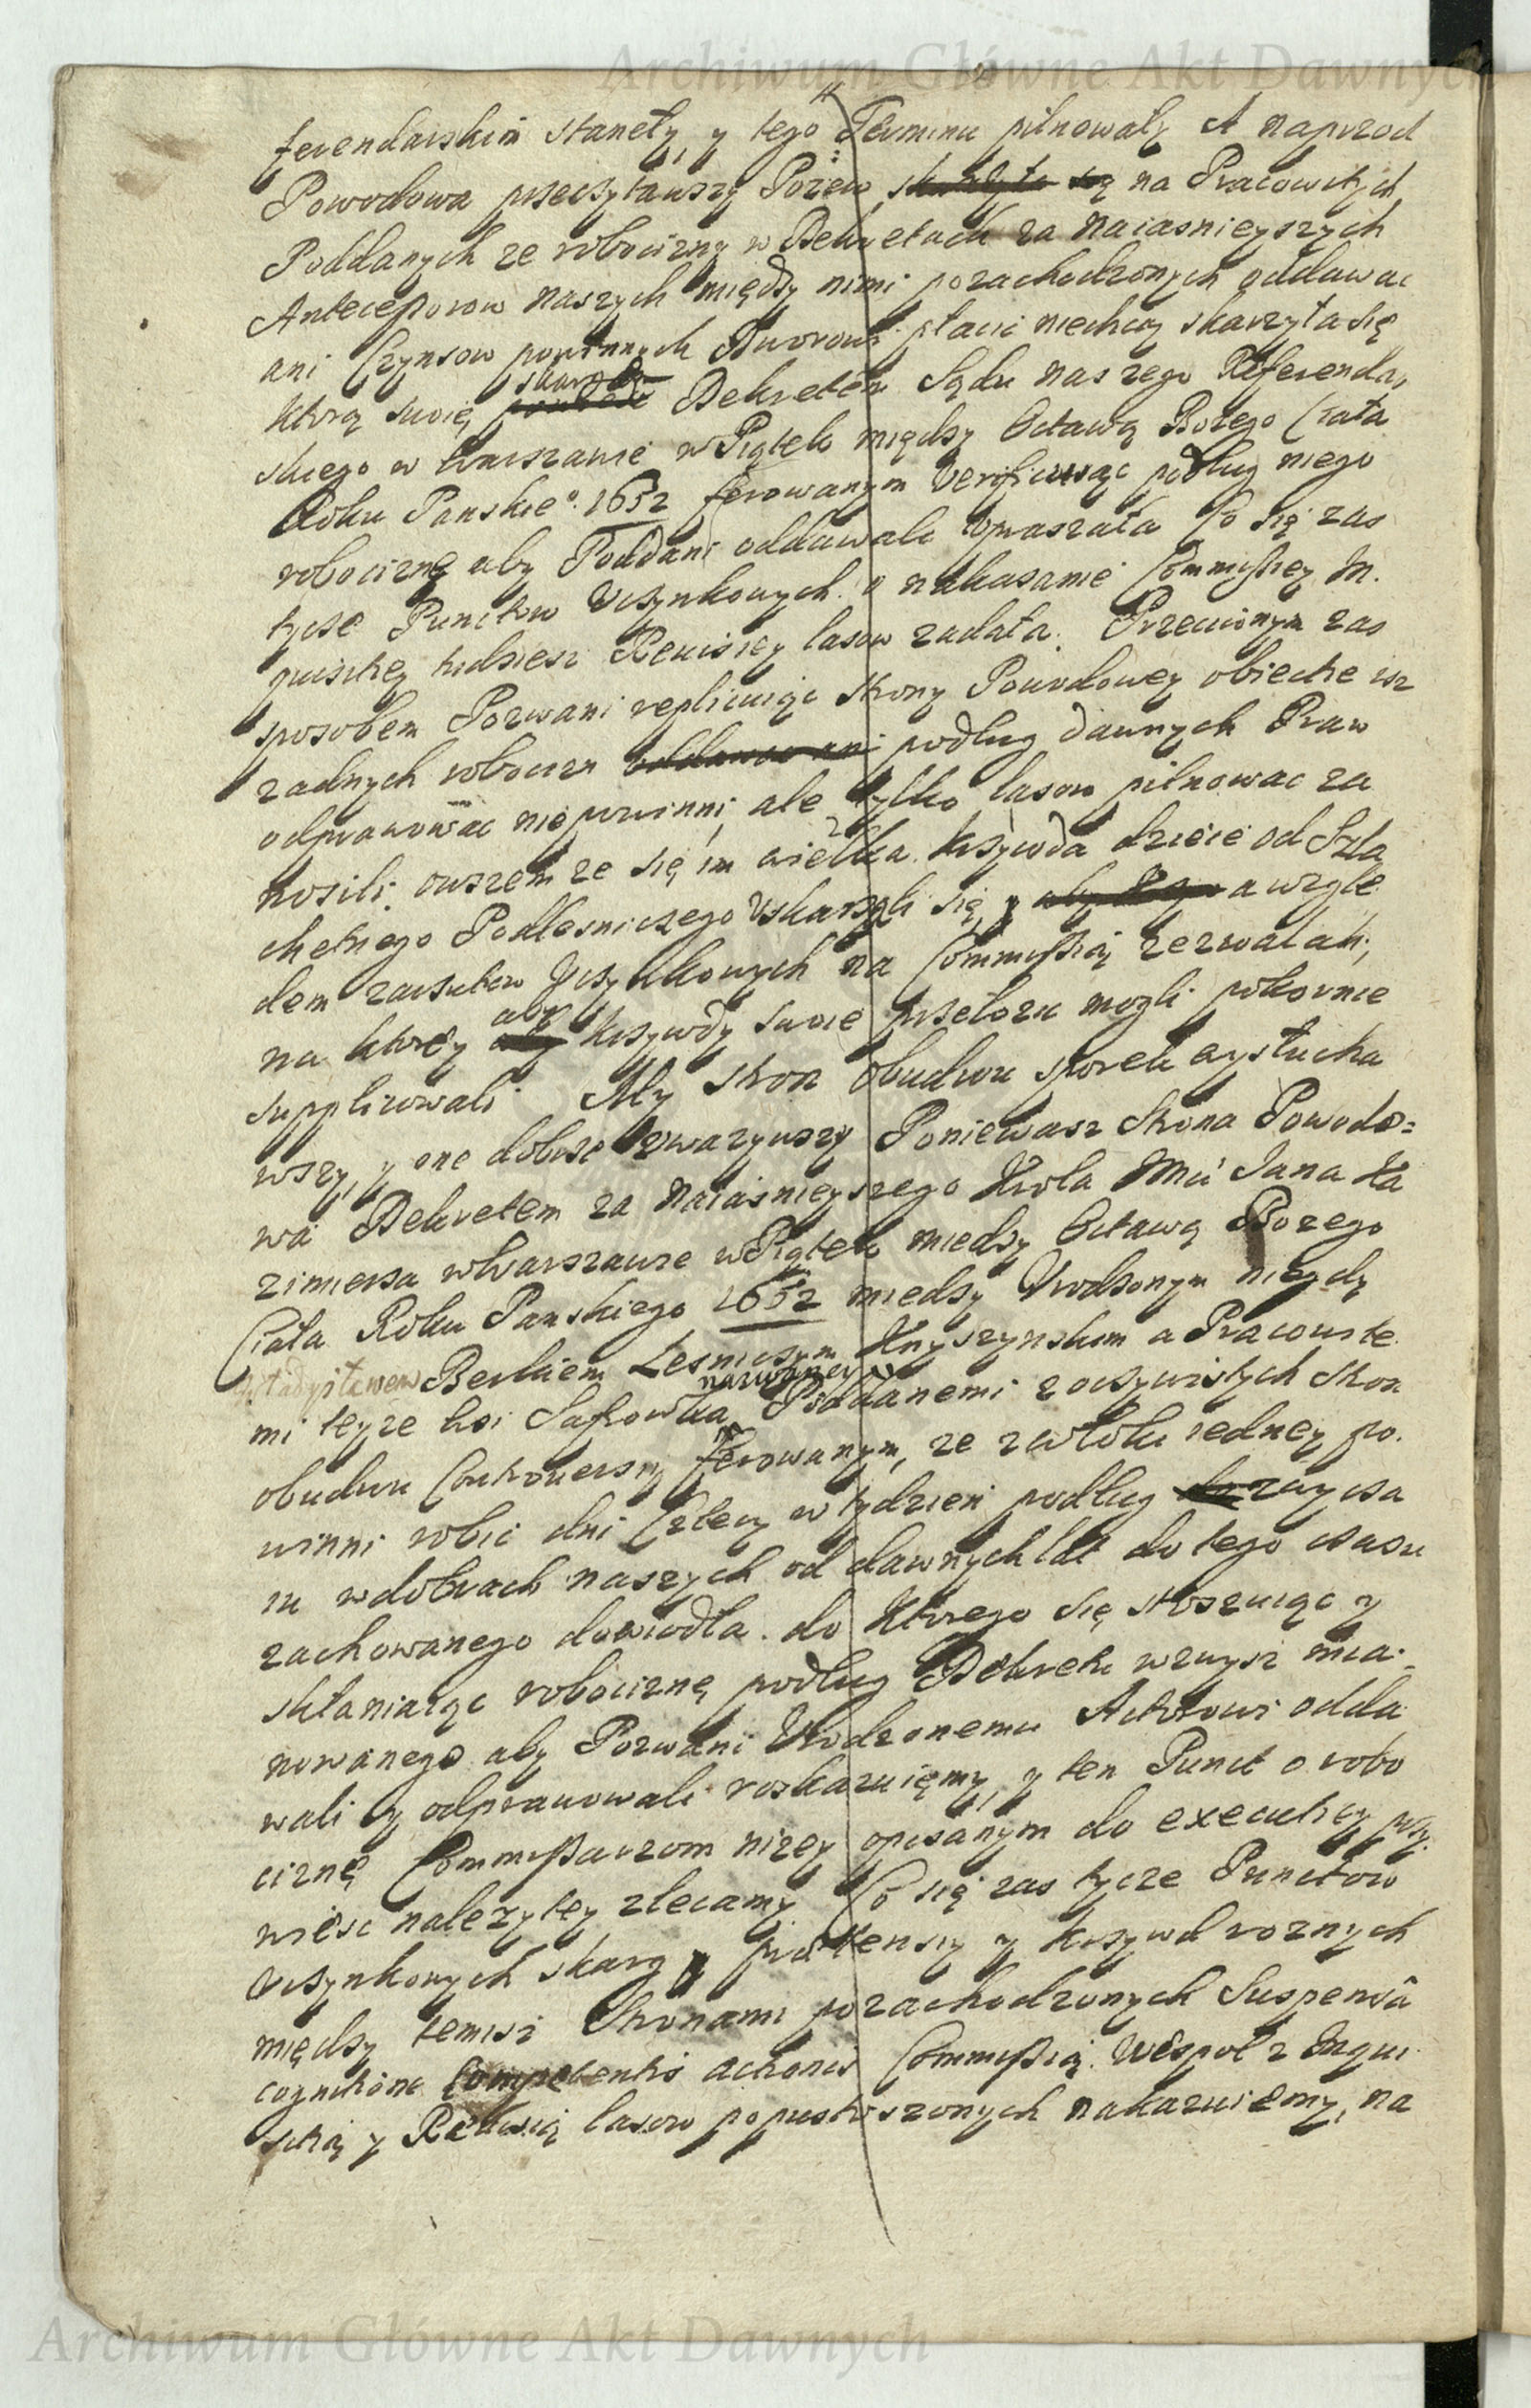 Archiwum Główne Akt Dawnych
ferendarskim stanęły, y tego Terminu pilnowały A naprzod
Powodowa przeczytawszy Pozew, skarżyła się na Pracowitych
Poddanych ze robocizny w Dekretach za Naiasnieyszych
Antecessorow naszych między nimi pozachodzonych oddawac
ani Czynszow powinnych Dworowi płacic niechcą skarzyła się
skargę
ktorą swoię Dekretem Sądu naszego Referendar,
skiego w Warszawie w Piątek między Octawą Bożego Ciała
Roku Panskie°. 1652 ferowanym Verificuiąc podług niego
robociznę aby Poddani oddawali Vpraszała Co się zas
tycze Punctow Uczynkowych. o nakazanie Commissiey In.
quisitiey tudziesz Rewisiey lasow żądała. Przeciwnym zas
sposobem Pozwani replicuiąc strony Powodowey obiectie isz
zadnych robocizn oddawac ani podług dawnych Praw
odprawowac nie powinni, ale tylko lasow pilnowac za
nosili, owszem ze się im wielka krzywda dzieie od Szla
chetnego Podlesniczego Vskarzyli się, y a wzglę
dem zarzutow Uczynkowych na Commissią zezwalali,
aby
na ktorey krzywdy swoie przełozic mogli pokornie
supplicowali My stron obudwu sporek wysłucha
wszy, y one dobrze zwazywszy Poniewasz Strona Powodo=
wa Dekretem za Naiasnieyszego Krola Jmci Jana Ka
zimierza w Warszawie w Piątek między Octawą Bozego
Ciała Roku Panskiego 1652 miedzy Vrodzonym niegdy
Władysławem Beckiem Lesniczym Knyszynskim a Pracowite
nazwaney
mi teyze wsi Sofrowka Poddanemi z oczywistych stron
obudwu Controwersiy ferowanym, ze z włoki iedney po.
winni robic dni cztery w tydzien podług zwycza
iu w dobrach naszych od dawnych lat do tego czasu
zachowanego dowiodła. do ktorego się stoszuiąc y
skłaniaiąc robociznę podług Dekretu wzwysz mia.
nowanego aby Pozwani Vrodzonemu Aktorowi odda
wali y odprawowali roskazuięmy, y ten Punct o robo
ciznę Commissarzom nizey opisanym do executiey przy.
wiesc nalezytey zlecamy Co się zas tycze Punctow
Vczynkowych skarg y praetensiy y krzywd roznych
między temisz Stronami pozachodzonych Suspensâ
cognitione Competentis actionis Commissią. Wespoł z Inqui.
sitią y Rewisią lasow popustoszonych nakazuiemy, na
Archiwum Główne Akt Dawnych